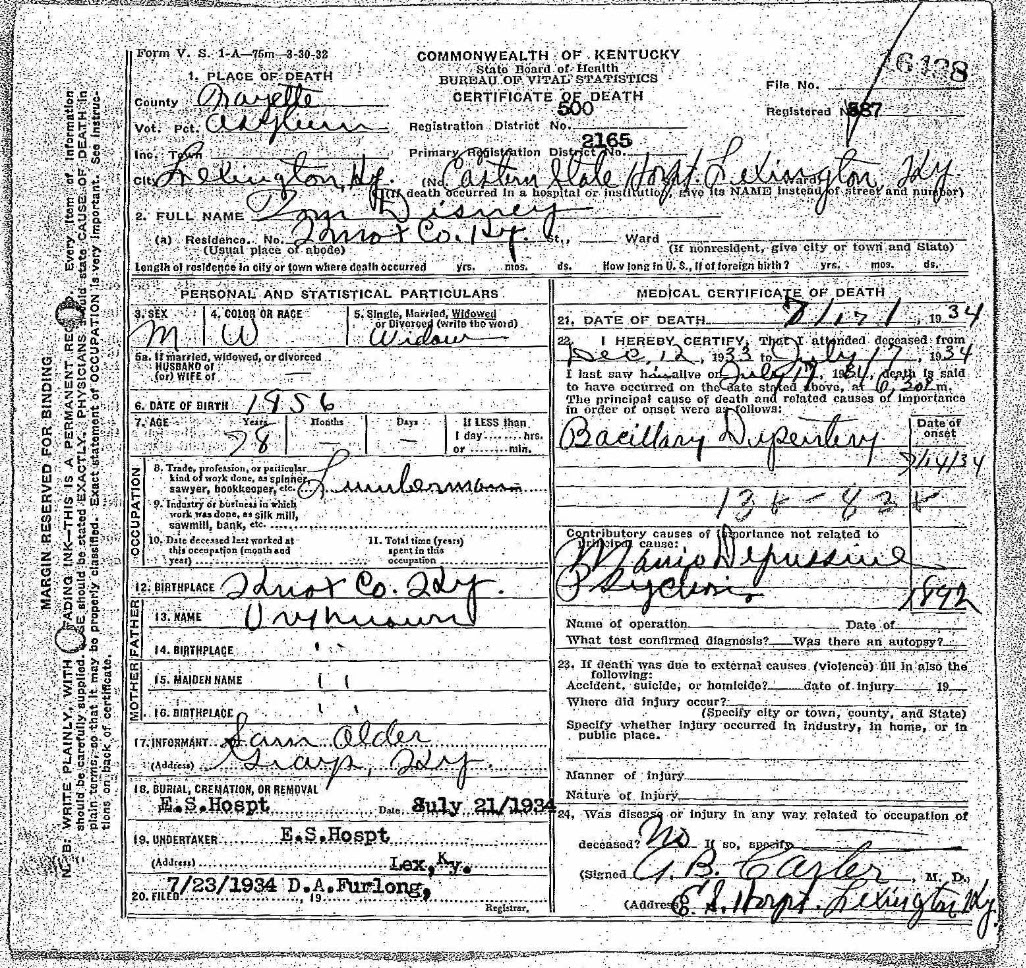 Form V. S. 1-A—75m—3-30-32
COMMONWEALTH OF KENTUCKY
State Board of Health
BUREAU OF VITAL STATISTICS
CERTIFICATE OF DEATH
File No. 16438
Registered No. 587
1. PLACE OF DEATH
County Fayette
Vot. Pct. Asylum
Registration District No. 500
Inc. Town
Primary Registration District No. 2165
City Lexington, Ky. (No. Eastern State Hospt. Lexington, Ky
(If death occurred in a hospital or institution, give its NAME instead of street and number)
2. FULL NAME Tom Disney
(a) Residence. No. Knox Co. Ky. St., Ward
(Usual place of abode) (If nonresident, give city or town and State)
Length of residence in city or town where death occurred yrs. mos. ds. How long in U. S., if of foreign birth? yrs. mos. ds.
PERSONAL AND STATISTICAL PARTICULARS
3. SEX M
4. COLOR OR RACE W
5. Single, Married, Widowed or Divorced (write the word) Widow
5a. If married, widowed, or divorced
HUSBAND of
(or) WIFE of —
6. DATE OF BIRTH 1956
7. AGE Years 78 Months — Days — If LESS than
1 day ........hrs.
or ........min.
OCCUPATION
8. Trade, profession, or particular
kind of work done, as spinner,
sawyer, bookkeeper, etc. Lumberman
9. Industry or business in which
work was done, as silk mill,
sawmill, bank, etc.
10. Date deceased last worked at
this occupation (month and
year)
11. Total time (years)
spent in this
occupation
12. BIRTHPLACE Knox Co. Ky.
FATHER
13. NAME Unknown
14. BIRTHPLACE " "
MOTHER
15. MAIDEN NAME " "
16. BIRTHPLACE " "
17. INFORMANT Sam Older
(Address) Ky.
18. BURIAL, CREMATION, OR REMOVAL
E.S.Hospt Date July 21/1934
19. UNDERTAKER E.S.Hospt
(Address) Lex, Ky.
20. FILED 7/23/1934 D.A.Furlong, 19
Registrar.
MEDICAL CERTIFICATE OF DEATH
21. DATE OF DEATH 7/17/, 1934
22. I HEREBY CERTIFY, That I attended deceased from
Dec. 12, 1933 to July 17, 1934
I last saw him alive on July 17, 1934, death is said
to have occurred on the date stated above, at 6,30 P m.
The principal cause of death and related causes of importance
in order of onset were as follows:
Date of onset
Bacillary Dysentery
7/14/34
Contributory causes of importance not related to
principal cause:
Manic Depressive
Psychosis 1892
Name of operation Date of
What test confirmed diagnosis? Was there an autopsy?
23. If death was due to external causes (violence) fill in also the
following:
Accident, suicide, or homicide? date of injury 19
Where did injury occur?
(Specify city or town, county, and State)
Specify whether injury occurred in industry, in home, or in
public place.
Manner of injury
Nature of injury
24. Was disease or injury in any way related to occupation of
deceased? No If so, specify
(Signed A. B. Carter, M. D.
(Address E. S. Hospt. Lexington Ky.
MARGIN RESERVED FOR BINDING
N. B. WRITE PLAINLY, WITH FADING INK—THIS IS A PERMANENT RE Every item of information
should be carefully supplied. GE should be stated EXACTLY. PHYSICIANS should state CAUSE OF DEATH in
plain terms, so that it may be properly classified. Exact statement of OCCUPATION is very important. See instruc-
tions on back of certificate.